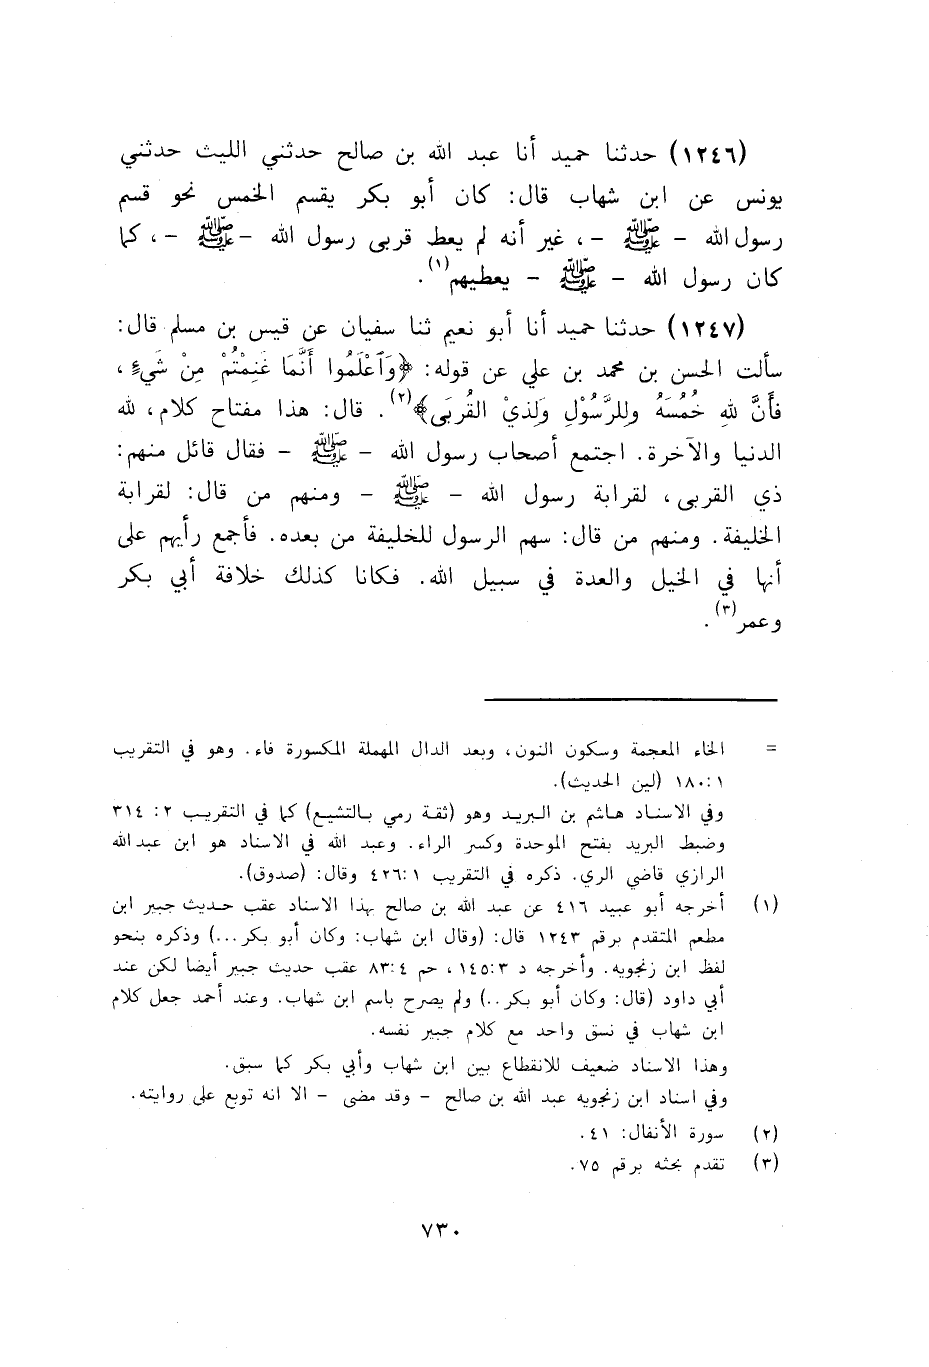 (١٢٤٦) حدثنا حميد أنا عبد الله بن صالح حدثني الليث حدثني
يونس عن ابن شهاب قال: كان أبو بكر يقسم الخمس نحو قسم
رسول الله - ﷺ -، غير أنه لم يعط قربى رسول الله - ﷺ -، كما
كان رسول الله - ﷺ - يعطيهم(١).
(١٢٤٧) حدثنا حميد أنا أبو نعيم ثنا سفيان عن قيس بن مسلم قال:
سألت الحسن بن محمد بن علي عن قوله: ﴿وَٱعْلَمُوا أَنَّمَا غَنِمْتُمْ مِنْ شَيءٍ،
فأَنَّ للهِ خُمُسَهُ وللرَّسُوْلِ وَلِذيْ القُربَى﴾(٢). قال: هذا مفتاح كلام، لله
الدنيا والآخرة. اجتمع أصحاب رسول الله - ﷺ - فقال قائل منهم:
ذي القربى، لقرابة رسول الله - ﷺ - ومنهم من قال: لقرابة
الخليفة. ومنهم من قال: سهم الرسول للخليفة من بعده. فأجمع رأيهم على
أنها في الخيل والعدة في سبيل الله. فكانا كذلك خلافة أبي بكر
وعمر(٣).
= الخاء المعجمة وسكون النون، وبعد الدال المهملة المكسورة فاء. وهو في التقريب
١:١٨٠ (لين الحديث).
وفي الاسناد هاشم بن البريد وهو (ثقة رمي بالتشيع) كما في التقريب ٢: ٣١٤
وضبط البريد بفتح الموحدة وكسر الراء. وعبد الله في الاسناد هو ابن عبدالله
الرازي قاضي الري. ذكره في التقريب ١:٤٢٦ وقال: (صدوق).
(١) أخرجه أبو عبيد ٤١٦ عن عبد الله بن صالح بهذا الاسناد عقب حديث جبير ابن
مطعم المتقدم برقم ١٢٤٣ قال: (وقال ابن شهاب: وكان أبو بكر...) وذكره بنحو
لفظ ابن زنجويه. وأخرجه د ٣:١٤٥، حم ٤:٨٣ عقب حديث جبير أيضا لكن عند
أبي داود (قال: وكان أبو بكر..) ولم يصرح باسم ابن شهاب. وعند أحمد جعل كلام
ابن شهاب في نسق واحد مع كلام جبير نفسه.
وهذا الاسناد ضعيف للانقطاع بين ابن شهاب وأبي بكر كما سبق.
وفي اسناد ابن زنجويه عبد الله بن صالح - وقد مضى - الا انه توبع على روايته.
(٢) سورة الأنفال: ٤١.
(٣) تقدم بحثه برقم ٧٥.
٧٣٠